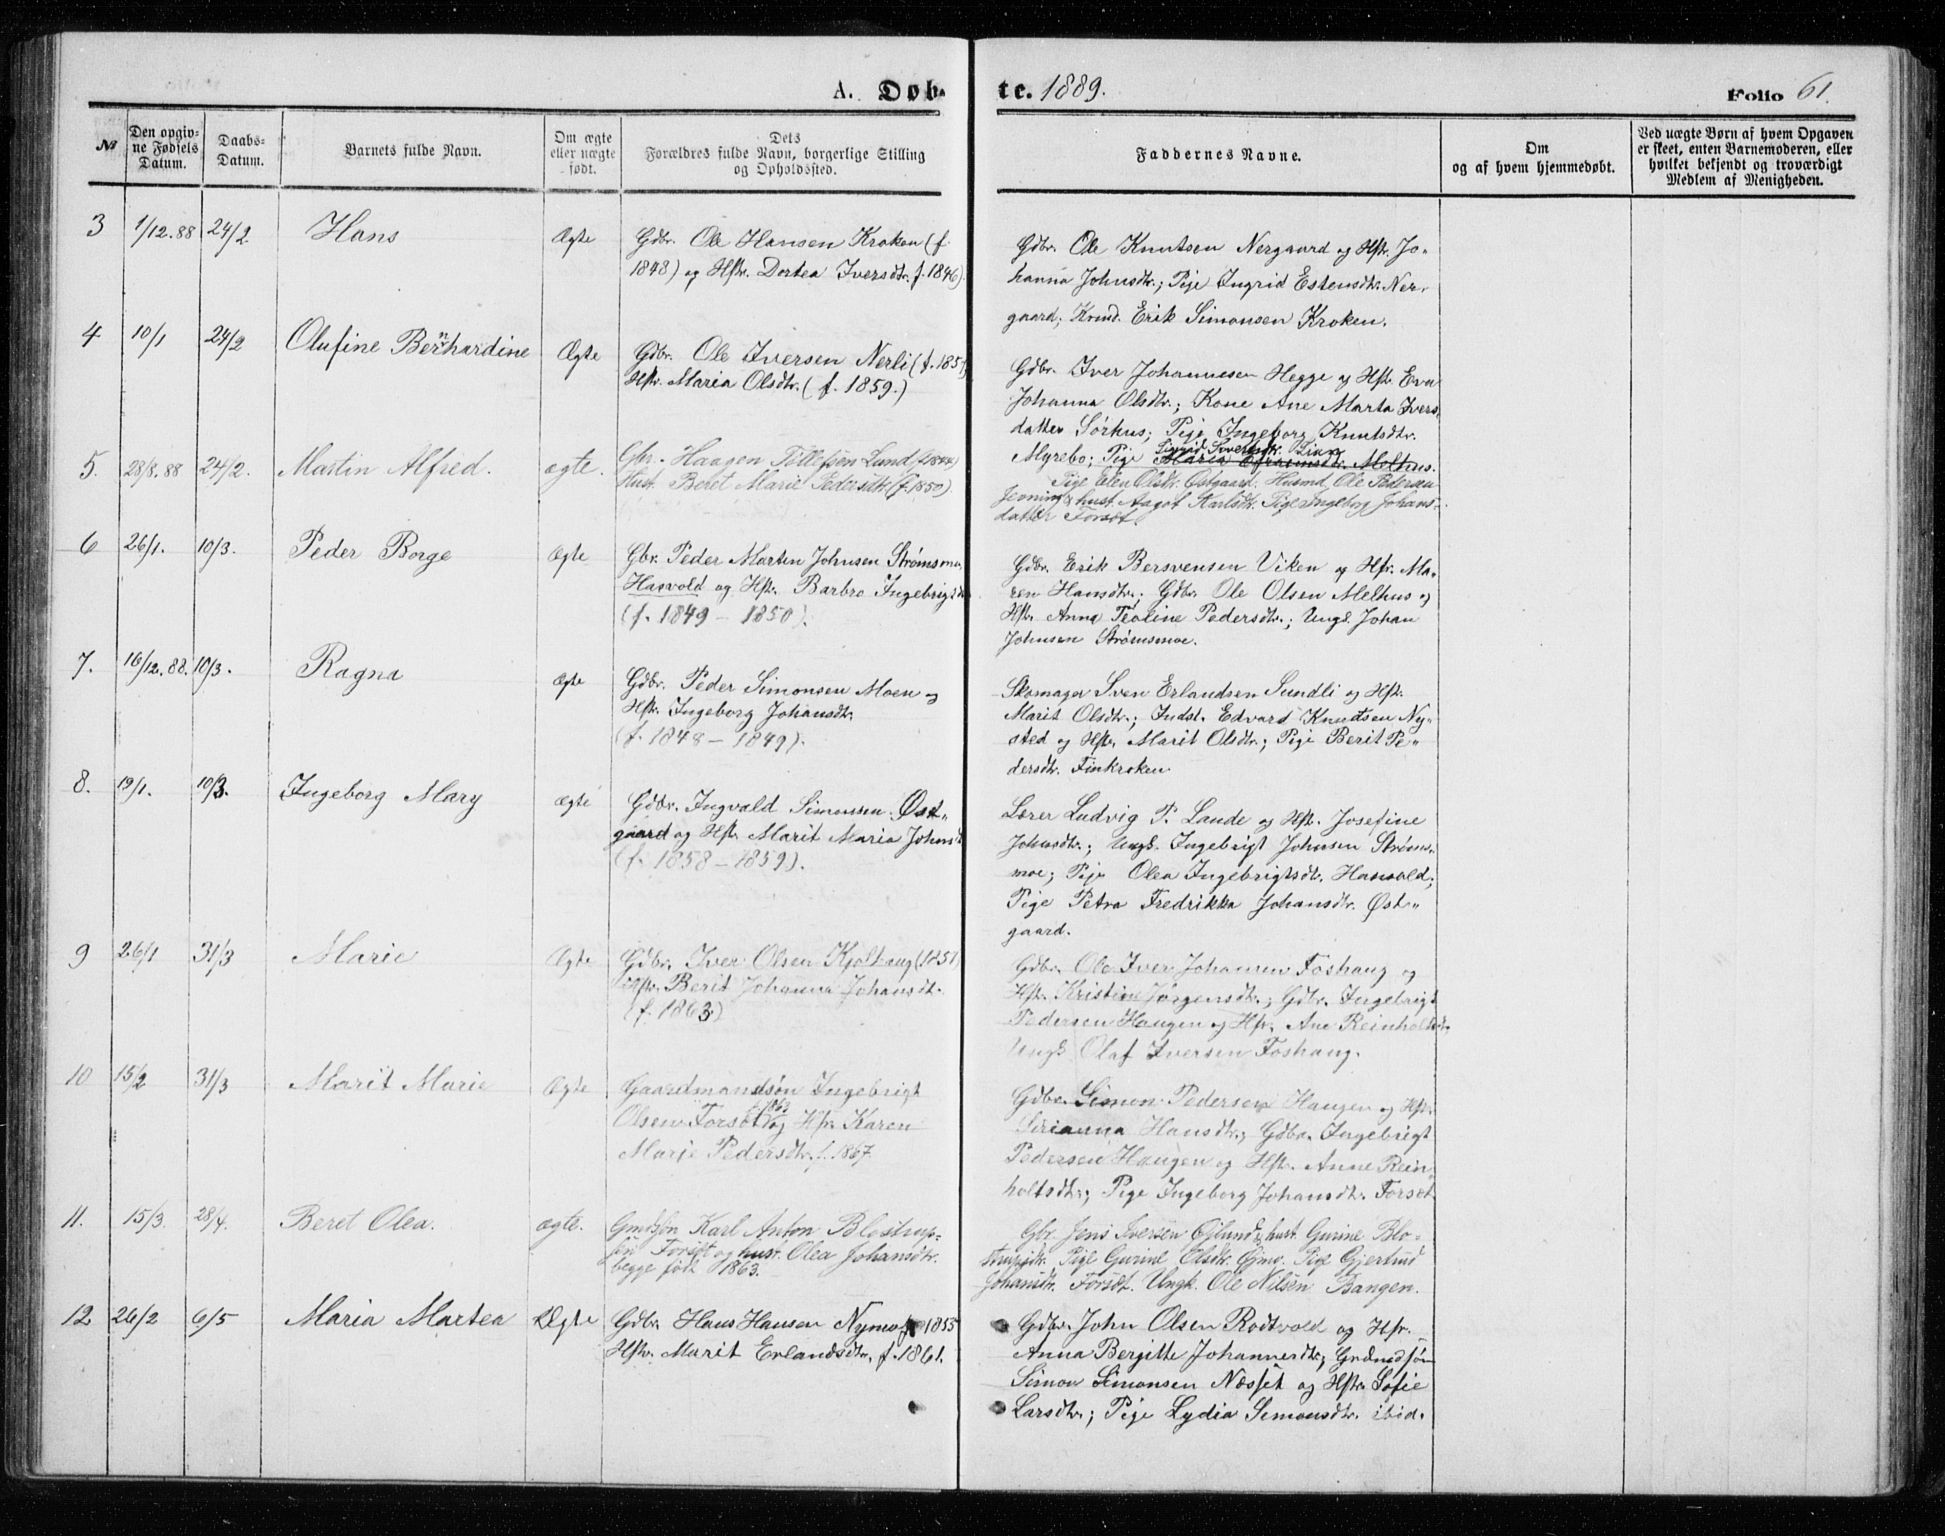 A. Døbte. 1889. Folio 61.
№ | Den opgivne Fødsels Datum. | Daabs-Datum. | Barnets fulde Navn. | Om ægte eller uægte født. | Dets Forældres fulde Navn, borgerlige Stilling og Opholdssted. | Faddernes Navne. | Om og af hvem hjemmedøbt. | Ved uægte Børn af hvem Opgaven er skeet, enten Barnemoderen, eller hvilket bekjendt og troværdigt Medlem af Menigheden.
3 1/12.88 24/2 Hans Ægte
Gdbr. Ole Hansen Kroken (f.
1848) og Hstr. Dortea Iversdtr. f. 1846).
Gdbr. Ole Knutsen Nergaard og Hstr. Jo-
hanna Johnsdtr.; Pige Ingrid Estensdtr. Ner-
gaard; Erik Simonsen Kroken.
4 10/1 24/2 Olufine Bernhardine Ægte
Gdbr. Ole Iversen Nerli (f. 185
Hstr. Maria Olsdtr. (f. 1859.)
Gdbr. Iver Johannesen Hegge og Hstr. Eva
Johanna Olsdtr.; Kone Ane Marta Ivers
datter Sørhus; Pige Ingeborg Knutsdtr.
Myrebo; Pige Maria Melhus.
5. 28/8.88 24/2. Martin Alfred. ægte.
Gbr. Haagen Tollefsen Lund
Hust. Beret Marie Pedersdtr (f. 1850)
Pige Elen Olsdr. Østgaard. Husmd. Ole Pedersen
Jevning & hust Aagot Karlsdtr. Pige Ingeborg Johans-
datter Forsøt
6 26/1. 10/3. Peder Borge Ægte
Gbr. Peder Martin Johnsen Strømsmo,
Hasvold og Hstr. Barbro Ingebrigtsd
(f. 1849 – 1850).
Gdbr. Erik Bersvensen Viken og Hstr. Ma-
ren Hansdtr.; Gdbr. Ole Olsen Melhus og
Hstr. Anna Teoline Pedersdtr.; Ungk. Johan
Johnsen Strømsmoe.
7. 16/12.88. 10/3. Ragna Ægte
Gdbr. Peder Simonsen Moen og
Hstr. Ingeborg Johansdtr.
(f. 1848 – 1849).
Skomager Sven Erlandsen Sundli og Hstr.
Marit Olsdtr.; Indst. Edvard Knudtsen Ny-
sted og Hstr. Marit Olsdtr.; Pige Berit Pe-
dersdtr. Finkroken
8. 19/1. 10/3. Ingeborg Mary Ægte
Gdbr. Ingvald Simonsen Øst-
gaard og Hstr. Marit Maria Johnsd
(f. 1858 – 1859).
Lærer Ludvig P. Lande og Hstr. Josefine
Johnsdtr.; Ungk. Ingebrigt Johnsen Strøms-
moe; Pige Olea Ingebrigtsdtr. Hasvold;
Pige Petra Fredrikka Johansdtr. Øst-
gaard.
9 26/1 31/3 Marie Ægte
Gdbr. Iver Olsen Kjolhaug (1851)
Hstr. Berit Johanna Johansdt.
(f. 1863)
Gdbr. Ole Iver Johansen Foshaug og
Hstr. Kristine Jørgensdtr.; Gdbr. Ingebrigt
Pedersen Haugen og Hstr. Ane Reinholtsdtr.
Ungk. Olaf Iversen Foshaug.
10 15/2 31/3 Marit Marie Ægte
Gaardmandsøn Ingebrigt
Olsen Forsøt f. 1863 og Hstr. Karen
Marie Pedersdtr. f. 1867.
Gdbr. Simon Pedersen Haugen og Hstr.
Sirianna Hansdtr.; Gdbr. Ingebrigt
Pedersen Haugen og Hstr. Anne Rein-
holtsdtr.; Pige Ingeborg Johansdtr. Forsøt
11. 15/3. 28/4. Beret Olea. ægte.
Gmdssøn Karl Anton Blostrup-
sen Forsøt og hust. Olea Johansdtr.
begge født 1863.
Gbr. Jens Iversen Oplund & hust. Gurine Blo-
strupsdtr. Pige Gurine Olsdtr. Pige Gjertrud
Johansdtr. Forsøt. Ungk. Ole Nilsen Bangen.
12 26/2 6/5 Maria Martea Ægte
Gdbr. Hans Hansen Nymo f. 1855
Hstr. Marit Erlandsdtr. f. 1861.
Gdbr. John Olsen Rodtvold og Hstr.
Anna Bergitte Johannesdtr.; Grdmdsøn
Simon Simonsen Næsset og Hstr. Sofie
Larsdtr.; Pige Lydia Simonsdtr. ibid.